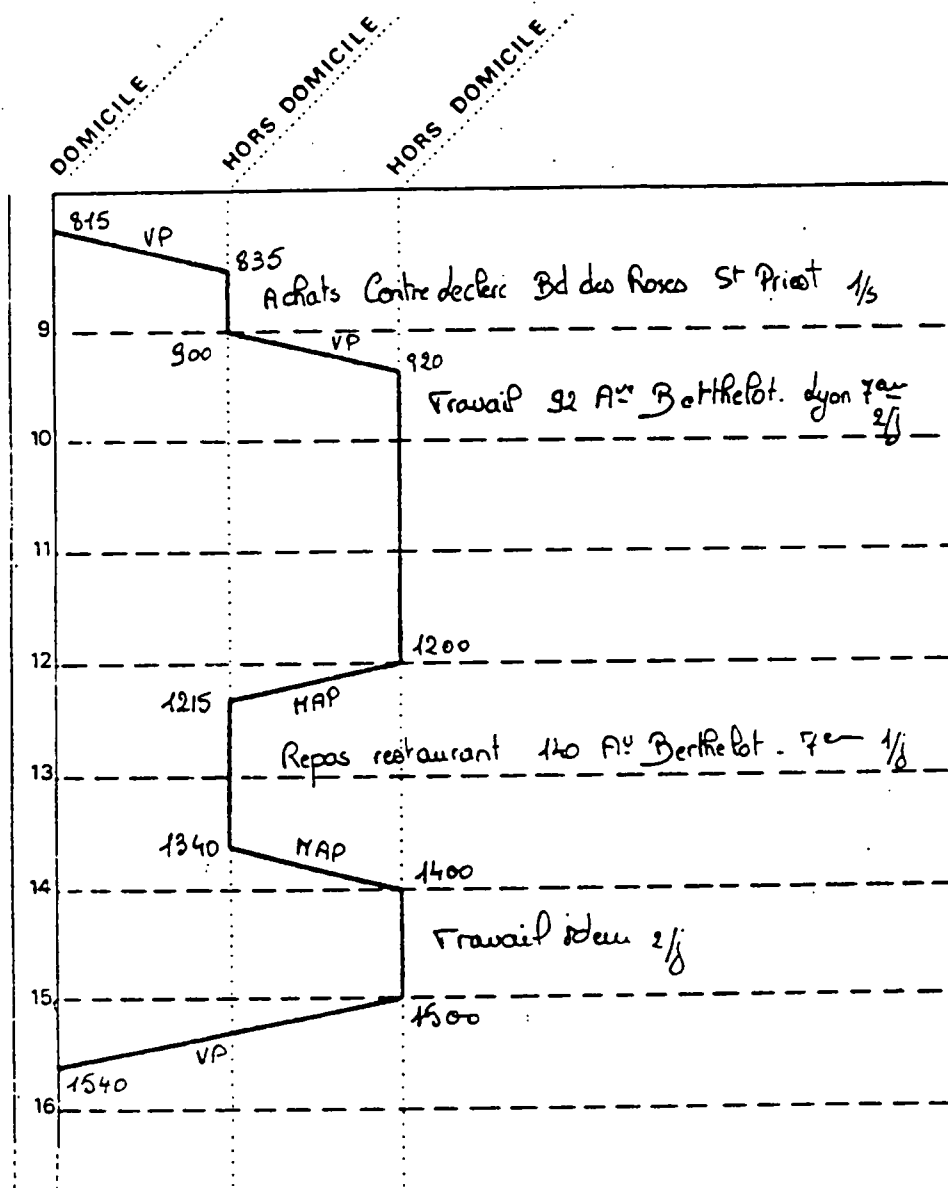 DOMICILE
HORS DOMICILE
HORS DOMICILE
815
VP
835
Achats Centre Leclerc Bd des Roses St Priest 1/s
9
900
VP
920
Travail 92 Ave Berthelot. Lyon 7em
2/j
10
11
12
1200
1215
MAP
Repas restaurant 140 Av Berthelot - 7em 1/j
13
1340
MAP
1400
14
Travail idem 2/j
15
1500
VP
1540
16